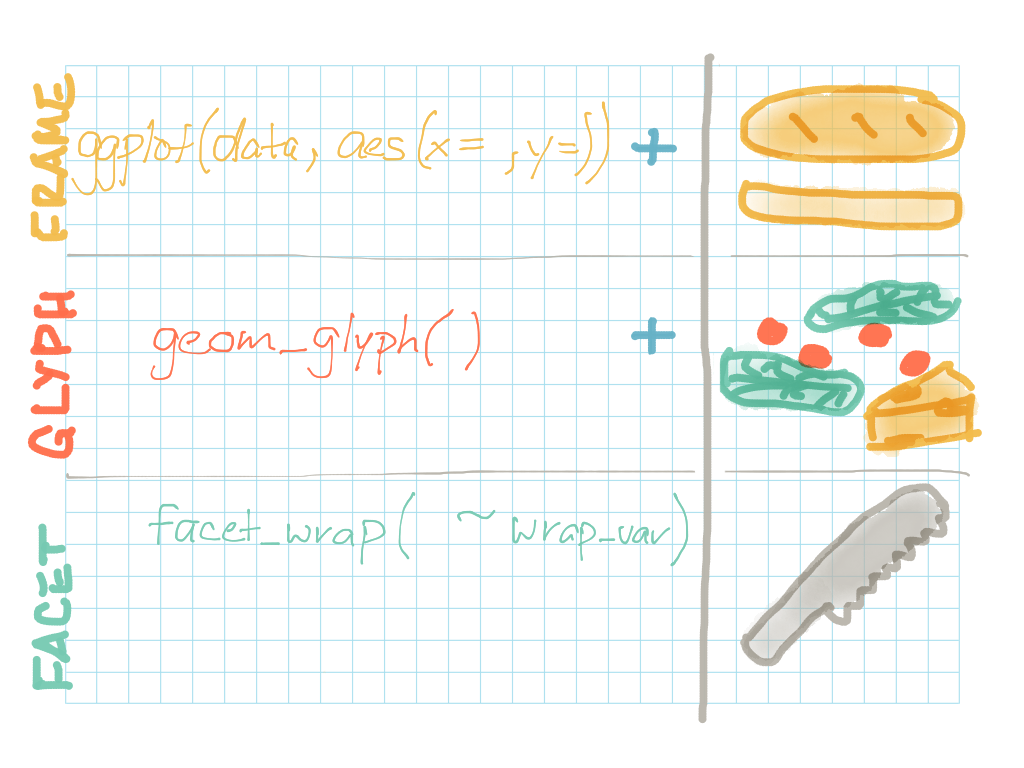 FRAME
ggplot(data, aes(x= ,y=)) +
GLYPH
geom_glyph( ) +
FACET
facet_wrap( ~ wrap_var)